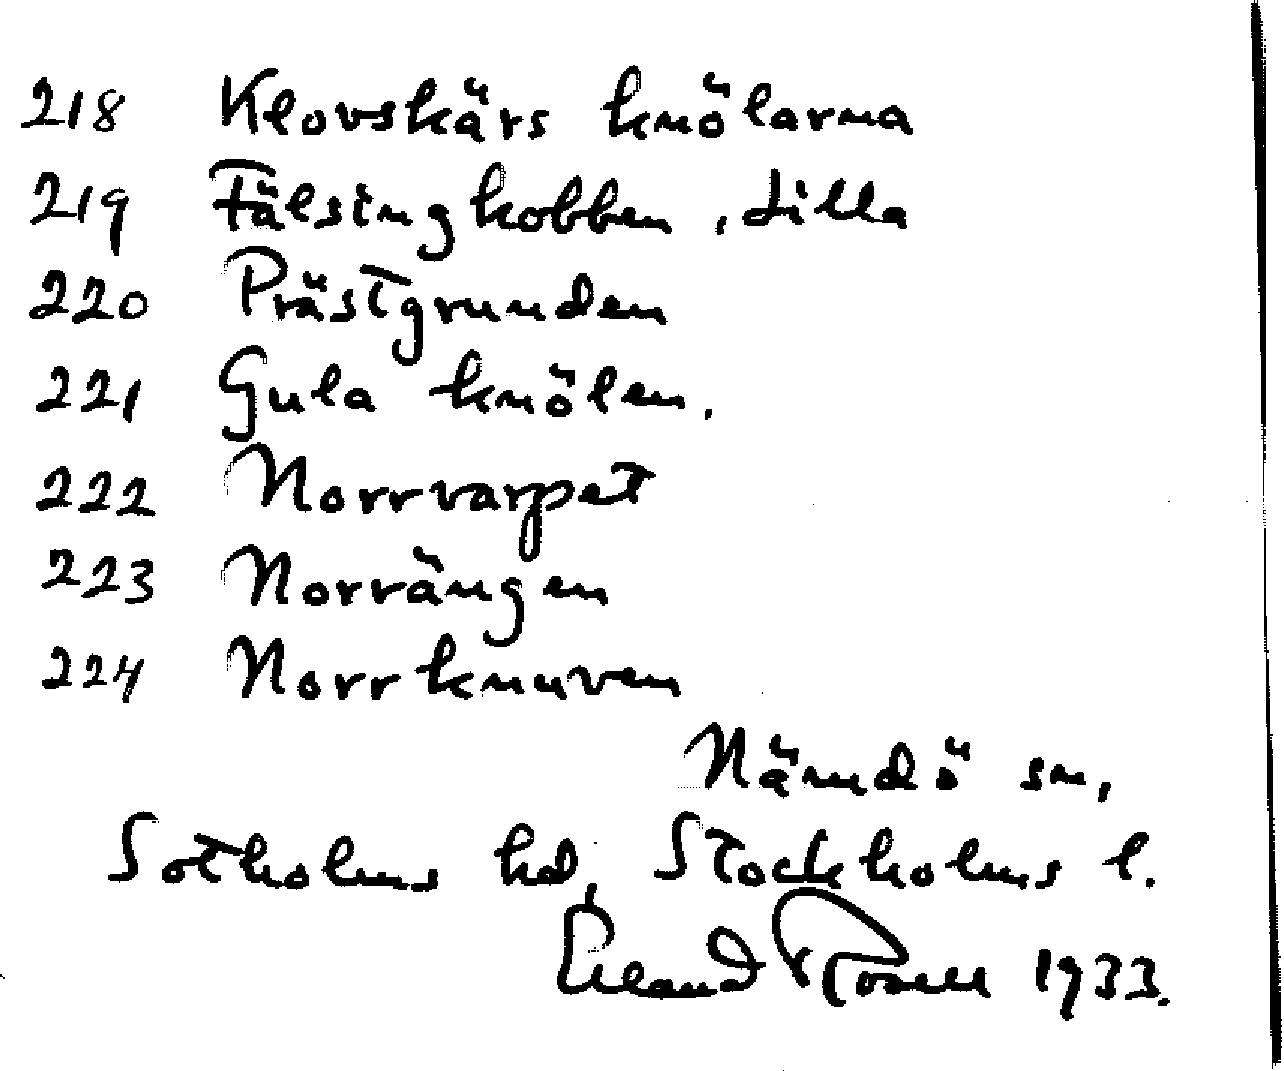 218 Klovskärs knölarna
219 Fälsingkobben, Lilla
220 Prästgrunden
221 Gula knölen.
222 Norrvarpet
223 Norrängen
224 Norrknuven
Nämdö sn,
Sotholms hd, Stockholms l.
Erland Rosell 1933.